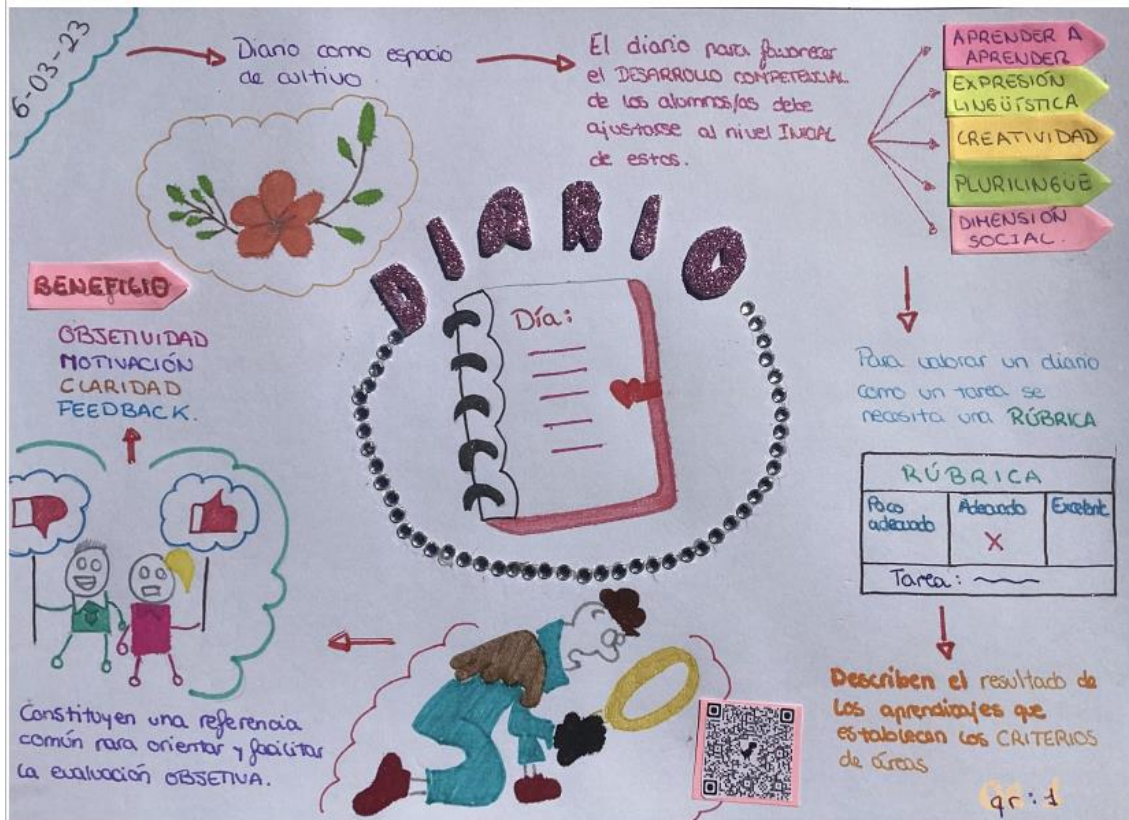 6-03-23
Diario como espacio
de cultivo.
El diario para favorecer
el DESARROLLO COMPETENCIAL
de los alumnos/as debe
ajustarse al nivel INICIAL
de estos.
APRENDER A
APRENDER
EXPRESIÓN
LINGÜÍSTICA
CREATIVIDAD
PLURILINGÜE
DIMENSIÓN
SOCIAL.
DIARIO
Día:
Para valorar un diario
como un tarea se
necesita una RÚBRICA
RÚBRICA
Poco
adecuado
Adecuado
Excelente
X
Tarea:
Describen el resultado de
los aprendizajes que
establecen los CRITERIOS
de áreas
qr: 1
Constituyen una referencia
común para orientar y facilitar
la evaluación OBJETIVA.
BENEFICIO
OBJETIVIDAD
MOTIVACIÓN
CLARIDAD
FEEDBACK.